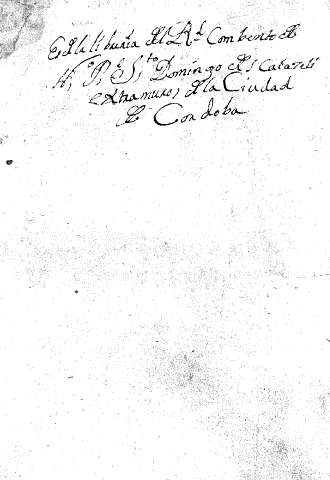 Es de la libreria del R.l Combento de
N. P. S.to Domingo de Scalaceli
extramuros de la Ciudad
de Cordoba